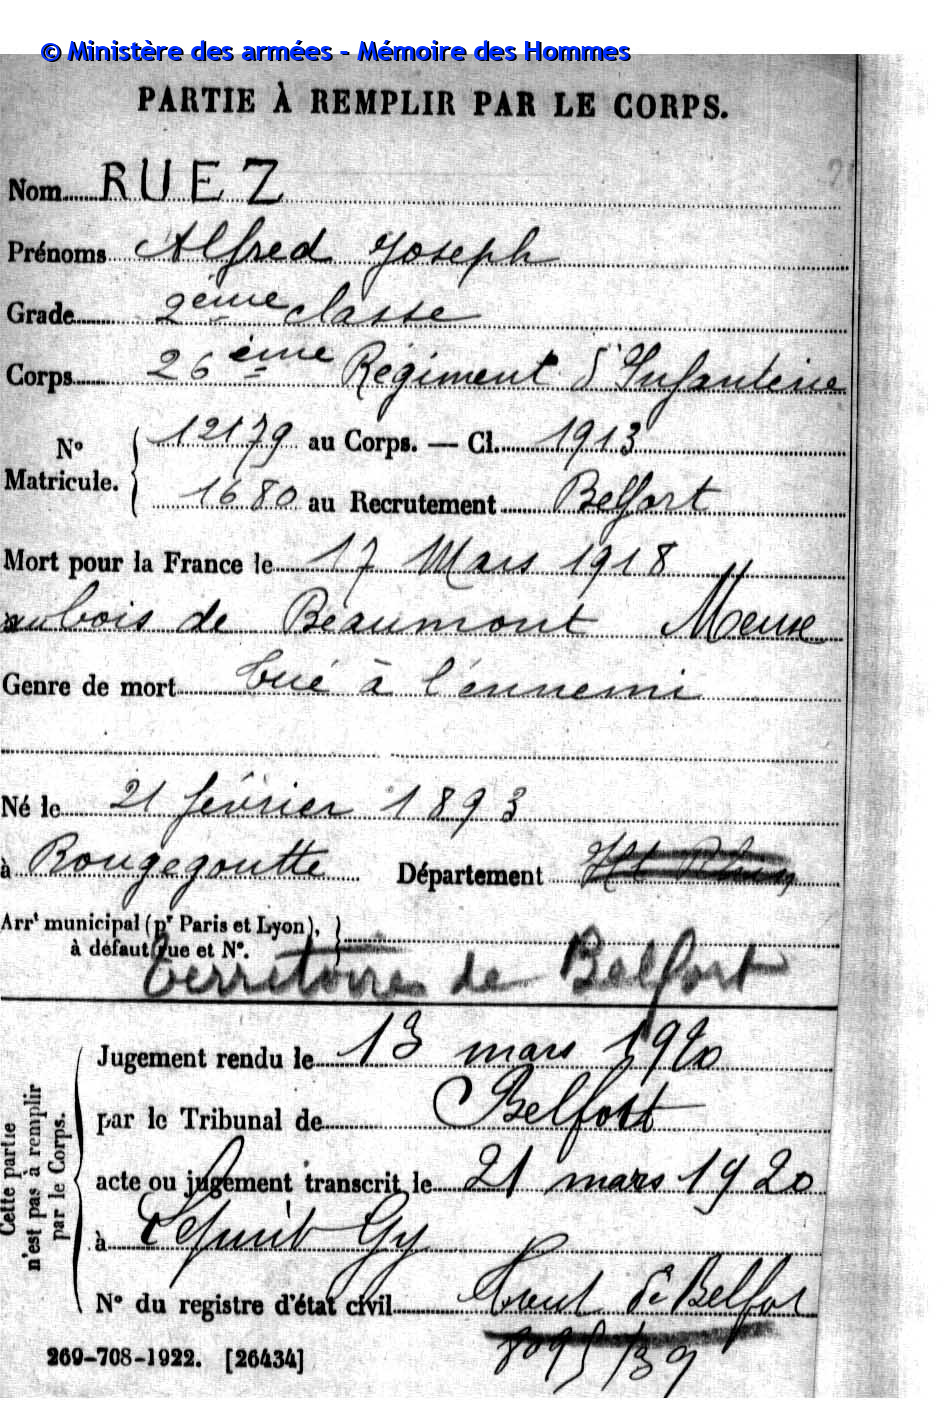 © Ministère des armées - Mémoire des Hommes
PARTIE À REMPLIR PAR LE CORPS.
Nom RUEZ
Prénoms Alfred Joseph
Grade 2ème classe
Corps 26ème Régiment d'Infanterie
N° Matricule. 12179 au Corps. — Cl. 1913
1680 au Recrutement Belfort
Mort pour la France le 17 Mars 1918
au bois de Beaumont Meuse
Genre de mort tué à l'ennemi
Né le 21 février 1893
à Rougegoutte Département Ht Rhin
Arrt municipal (pr Paris et Lyon),
à défaut rue et N°.
territoire de Belfort
Cette partie n'est pas à remplir par le Corps.
Jugement rendu le 13 mars 1920
par le Tribunal de Belfort
acte ou jugement transcrit le 21 mars 1920
à Gy
N° du registre d'état civil de Belfort
8095/39
269-708-1922. [26434]